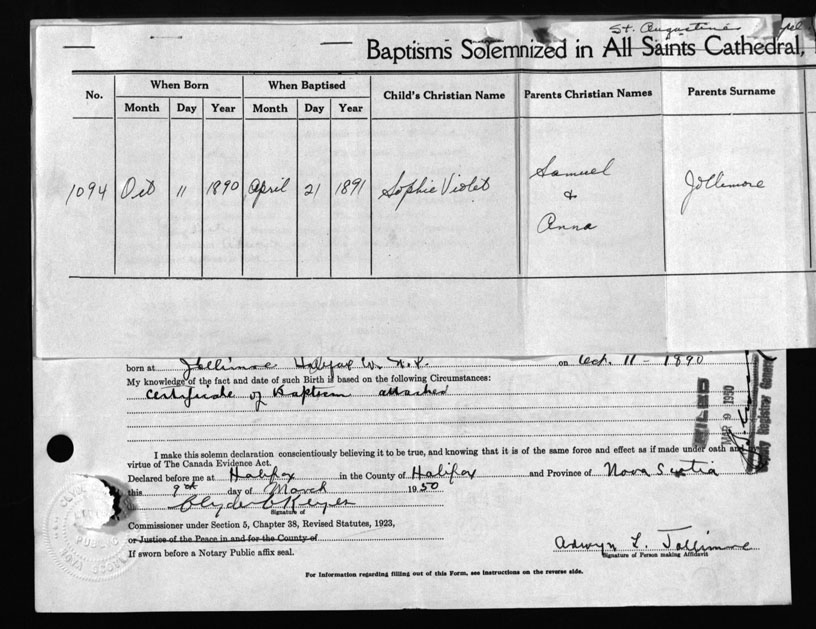 St. Augustine's
Baptisms Solemnized in All Saints Cathedral,
No. When Born When Baptised Child's Christian Name Parents Christian Names Parents Surname
Month Day Year Month Day Year
1094 Oct 11 1890 April 21 1891 Sophie Violet Samuel & Anna Jollimore
born at Jollimore Halifax Co. N.S. on Oct. 11 - 1890
My knowledge of the fact and date of such Birth is based on the following Circumstances:
Certificate of Baptism attached
FILED
MAR 9 1950
Deputy Registrar General
I make this solemn declaration conscientiously believing it to be true, and knowing that it is of the same force and effect as if made under oath and
virtue of The Canada Evidence Act.
Declared before me at Halifax in the County of Halifax and Province of Nova Scotia
this day of March 1950
Signature of
Commissioner under Section 5, Chapter 38, Revised Statutes, 1923,
or Justice of the Peace in and for the County of
If sworn before a Notary Public affix seal.
Jollimore
Signature of Person making Affidavit
For Information regarding filling out of this Form, see instructions on the reverse side.
PUBLIC
NOVA SCOTIA